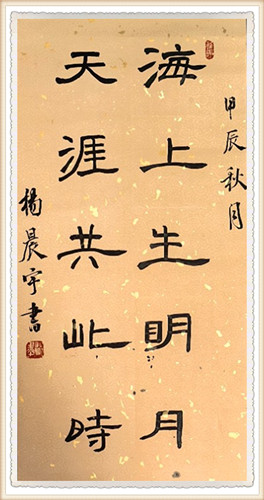 甲辰秋月
海上生明月
天涯共此時
楊晨宇書